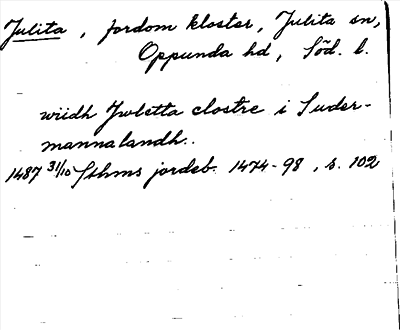 Julita, fordom kloster, Julita sn,
Oppunda hd, Söd. l.
wiidh Jwletta clostre i Suder-
mannalandh..
1487 31/10 Sthms jordeb. 1474-98, s. 102